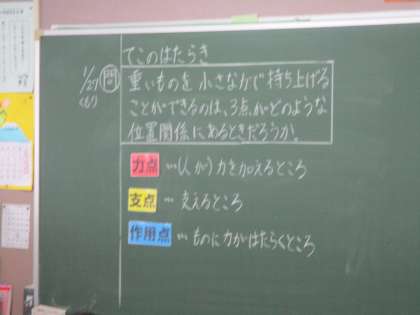 てこのはたらき
1/27
(6)
問
重いものを小さな力で持ち上げる
ことができるのは、3点がどのような
位置関係にあるときだろうか。
力点 …(人が)力を加えるところ
支点 … 支えるところ
作用点 … ものに力がはたらくところ